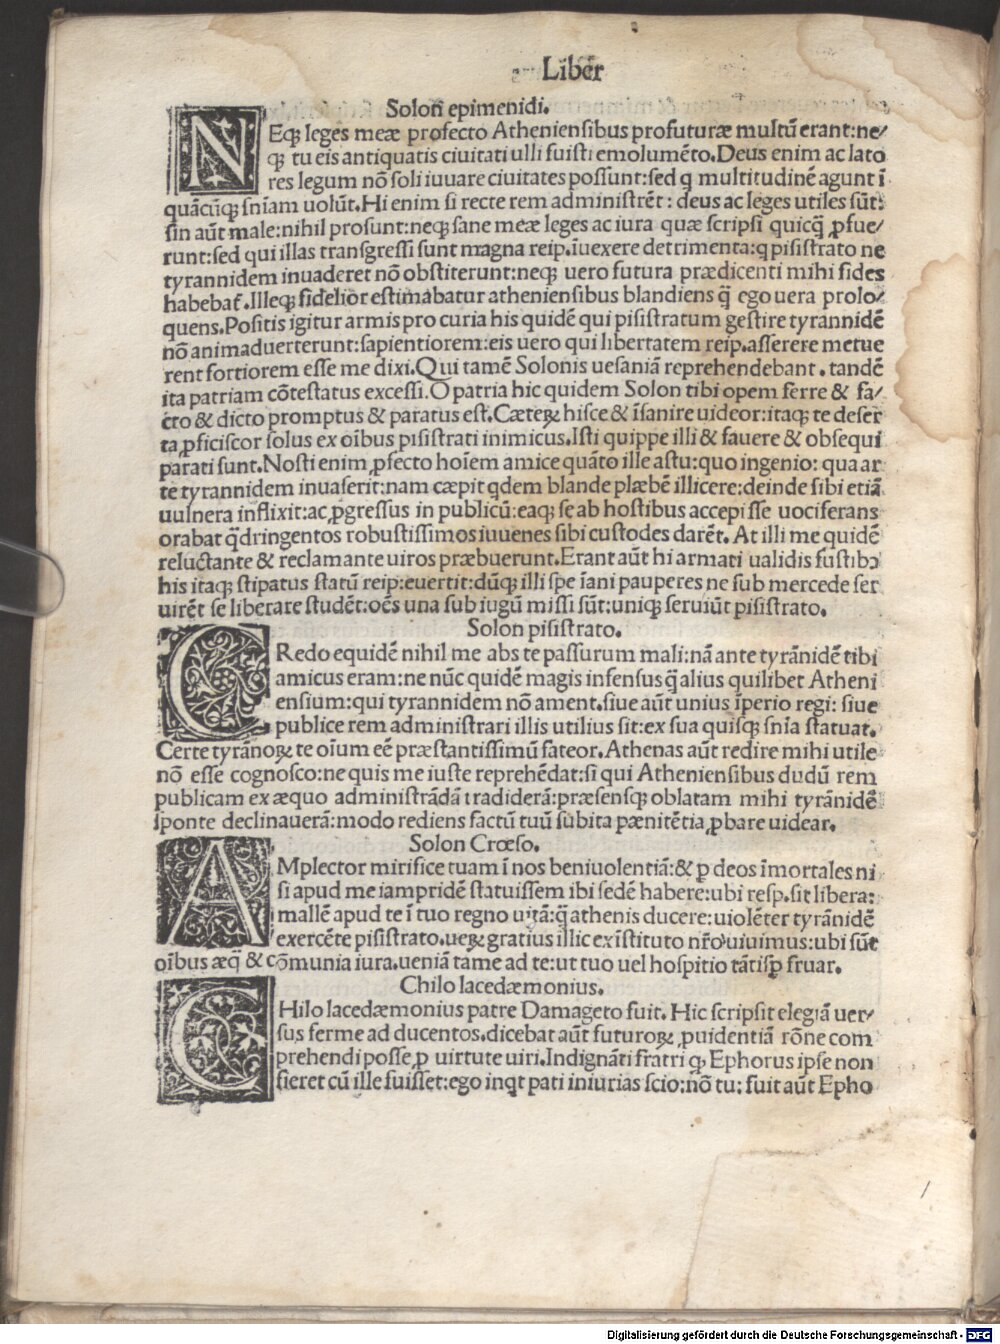 Liber
Solon epimenidi.
NEqꝫ leges meæ profecto Atheniensibus profuturæ multū erant:ne⸗
qꝫ tu eis antiquatis ciuitati ulli fuisti emolumēto.Deus enim ac lato
res legum nō soli iuuare ciuitates possunt:sed q multitudinē agunt ī
quācūqꝫ snīam uolūt.Hi enim si recte rem administrēt: deus ac leges utiles sūt:
sin aūt male:nihil prosunt:neqꝫ sane meæ leges ac iura quæ scripsi quicq̄ ꝓfue⸗
runt:sed qui illas transgressi sunt magna reip.īuexere detrimenta:q pisistrato ne
tyrannidem inuaderet nō obstiterunt:neqꝫ uero futura prædicenti mihi fides
habebat̄.Illeqꝫ fidelior estimabatur atheniensibus blandiens q̄ ego uera prolo⸗
quens.Positis igitur armis pro curia his quidē qui pisistratum gestire tyrannidē
nō animaduerterunt:sapientiorem:eis uero qui libertatem reip.asserere metue
rent fortiorem esse me dixi.Qui tamē Solonis uesaniā reprehendebant.tandē
ita patriam cōtestatus excessi.O patria hic quidem Solon tibi opem ferre & fa⸗
cto & dicto promptus & paratus est.Cæteꝝ hisce & īsanire uideor:itaqꝫ te deser
ta ꝓficiscor solus ex oībus pisistrati inimicus.Isti quippe illi & fauere & obsequi
parati sunt.Nosti enim ꝓfecto hoīem amice quāto ille astu:quo ingenio: qua ar
te tyrannidem inuaserit:nam cæpit qdem blande plæbē illicere:deinde sibi etiā
uulnera inflixit:ac ꝓgressus in publicū:eaqꝫ se ab hostibus accepisse uociferans
orabat q̄dringentos robustissimos iuuenes sibi custodes darēt. At illi me quidē
reluctante & reclamante uiros præbuerunt.Erant aūt hi armati ualidis fustibꝰ
his itaqꝫ stipatus statū reip:euertit:dūqꝫ illi spe īani pauperes ne sub mercede ser
uirēt se liberare studēt:oēs una sub iugū missi sūt:uniqꝫ seruiūt pisistrato.
Solon pisistrato.
CRedo equidē nihil me abs te passurum mali:nā ante tyrānidē tibi
amicus eram:ne nūc quidē magis infensus q̄ alius quilibet Atheni
ensium:qui tyrannidem nō ament.siue aūt unius īperio regi: siue
publice rem administrari illis utilius sit:ex sua quisqꝫ snīa statuat.
Certe tyrānoꝝ te oīum eē præstantissimū fateor.Athenas aūt redire mihi utile
nō esse cognosco:ne quis me iuste reprehēdat:si qui Atheniensibus dudū rem
publicam ex æquo administrādā tradiderā:præsensqꝫ oblatam mihi tyrānidē
sponte declinauerā:modo rediens factū tuū subita pænitētia ꝓbare uidear.
Solon Crœso.
AMplector mirifice tuam ī nos beniuolentiā:& ꝑ deos īmortales ni
si apud me iampridē statuissem ibi sedē habere:ubi resp.sit libera:
mallē apud te ī tuo regno uitā:q̄ athenis ducere:uiolēter tyrānidē
exercēte pisistrato.ueꝝ gratius illic ex īstituto nr̄o uiuimus:ubi sūt
oībus æq̄ & cōmunia iura.ueniā tame ad te:ut tuo uel hospitio tātisꝑ fruar.
Chilo lacedæmonius.
CHilo lacedæmonius patre Damageto fuit. Hic scripsit elegiā uer⸗
sus ferme ad ducentos.dicebat aūt futuroꝝ ꝓuidentiā rōne com
prehendi posse ꝑ uirtute uiri.Indignāti fratri qꝫ Ephorus ipse non
fieret cū ille fuisset:ego inqt pati iniurias scio:nō tu: fuit aūt Epho
Digitalisierung gefördert durch die Deutsche Forschungsgemeinschaft - DFG